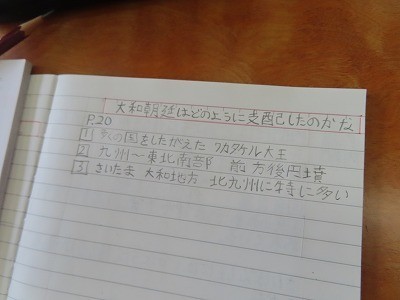 大和朝廷はどのように支配したのかだ。
P.20
1 多くの国をしたがえた ワカタケル大王
2 九州〜東北南部 前方後円墳
3 さいたま 大和地方 北九州に特に多い